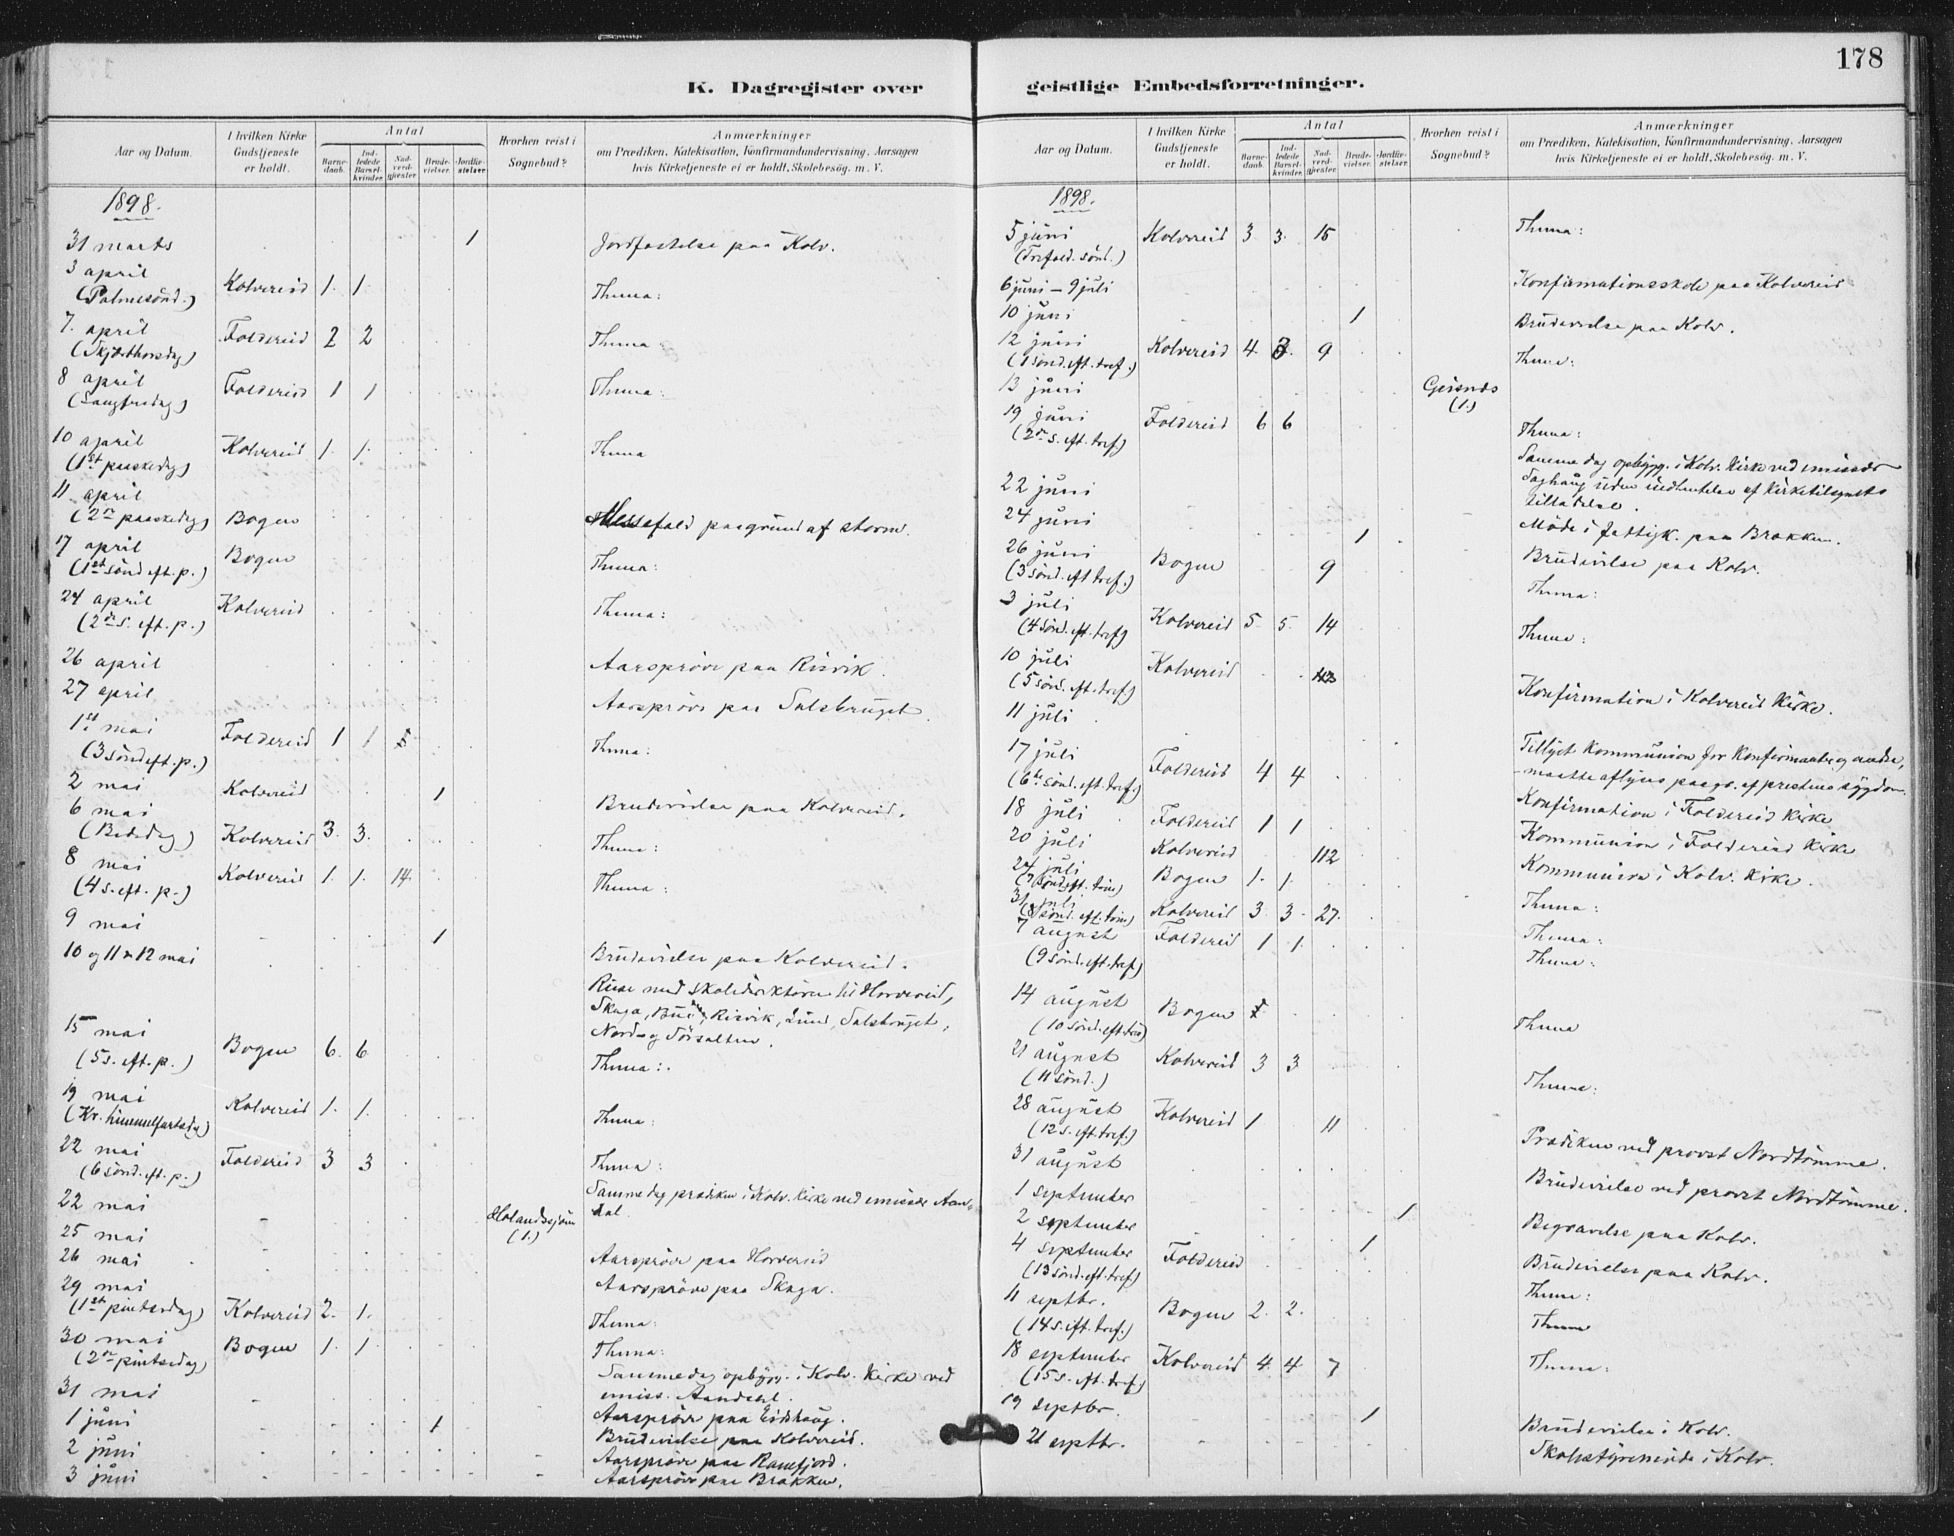 178
K. Dagregister over geistlige Embedsforretninger.
Aar og Datum.
I hvilken Kirke Gudstjeneste er holdt.
Antal
Barnedaab.
Indledede Barselkvinder.
Nadverdgjester.
Brudevielser.
Jordfæstelser
Hvorhen reist i Sognebud?
Anmærkninger
om Prædiken, Katekisation, Konfirmandundervisning, Aarsagen
hvis Kirketjeneste ei er holdt, Skolebesøg. m. V.
1898.
31 marts 1 Jordfæstelse paa Kolv.
3 april
(Palmesønd.) Kolvereid 1. 1. Thema:
7. april
(Skjærthorsdag) Foldereid 2 2 Thema:
8 april
(Langfredag) Foldereid 1 1 Thema:
10 april
(1st paaskedag) Kolvereid 1. 1. Thema
11 april
(2den paaskedag) Bogen Messefald paagrund af storm.
17 april
(1st sönd eft. p.) Bogen Thema:
24 april
(2den s. eft. p.) Kolvereid Thema:
26 april Aarspröve paa Risvik.
27 april Aarspröve paa Salsbruget.
1st mai
(3 sönd eft. p.) Foldereid 1 1 Thema:
2 mai Kolvereid 1 Brudevielse paa Kolvereid.
6 mai
(Bededag) Kolvereid 3. 3. Thema:
8 mai
(4 s. eft. p.) Kolvereid 1. 1. 14. Thema:
9 mai 1 Brudevielse paa Kolvereid.
10 og 11 & 12 mai Reise med skoledirektören til Horvereid,
Skaga, Risvik, Lund, Salsbruget,
Nord- og Sörsalten.
15 mai
(5 s. eft. p.) Bogen 6. 6 Thema:
19 mai
(Kr. himmelfartsdag) Kolvereid 1. 1. Thema:
22 mai
(6 sönd. eft. p.) Foldereid 3 3 Thema:
22 mai Samme dag prædiken i Kolv. Kirke ved emissær Aandal.
25 mai (1.)
26 mai Aarspröve paa Horvereid
29 mai Aarspröve paa Skaga.
(1st pintsedag) Kolvereid 2. 1. Thema:
30 mai
(2den pintsedag) Bogen 1. 1. Thema:
Samme dag opbygg. i Kolv. Kirke ved
emiss. Aandahl.
31 mai Aarspröve paa Eidshaug.
1 juni 1 Brudevielse paa Kolvereid.
2 juni Aarspröve paa Ramfjord.
3 juni Aarspröve paa Brakken.
Aar og Datum.
I hvilken Kirke Gudstjeneste er holdt.
Antal
Barnedaab.
Indledede Barselkvinder.
Nadverdgjester.
Brudevielser.
Jordfæstelser.
Hvorhen reist i Sognebud?
Anmærkninger
om Prædiken, Katekisation, Konfirmandundervisning, Aarsagen
hvis Kirketjeneste ei er holdt, Skolebesøg. m. V.
1898.
5 juni
(Trefold. sönd.) Kolvereid 3 3. 15 Thema:
6 juni – 9 juli Konfirmationsskole paa Kolvereid
10 juni 1 Brudevielse paa Kolv.
12 juni
(1 sönd. eft. tref.) Kolvereid 4. 3. 9 Thema:
13 juni Geisnes
(1.)
19 juni
(2den s. eft. tref) Foldereid 6 6 Thema:
Samme dag opbygg. i Kolv. Kirke ved emissær
uden indhentelse af Kirketilsynets
tilladelse.
22 juni Möde i fattigk. paa Brakken.
24 juni 1 Brudevielse paa Kolv.
26 juni
(3 sönd. eft tref.) Bogen 9 Thema:
3 juli
(4 sönd. eft. tref) Kolvereid 5. 5. 14 Thema:
10 juli
(5 sönd. eft. tref.) Kolvereid
11 juli Konfirmation i Kolvereid Kirke.
17 juli
(6te sönd. eft. tref) Foldereid 4 4 Tillyst Kommunion for Konfirmanter og andre,
maatte aflyses paagr. af prestens sygdom.
18 juli Foldereid 1 1 Konfirmation i Foldereid Kirke
20 juli Kolvereid 112 Kommunion i Foldereid Kirke
Kommunion i Kolv. Kirke.
24 juli
(7 sönd. eft. trin) Bogen 1. 1. Thema:
31 juli
(8 sönd. eft. trin) Kolvereid 3. 3. 27. Thema:
7 august
(9 sönd. eft. tref) Foldereid 1 1. Thema:
14 august
(10 sönd. eft. trin) Bogen Thema
21 august
(11 sönd.) Kolvereid 3 3 Thema:
28 august
(12 s. eft. tref.) Kolvereid 1 11
31 august Prædiken ved provst Nordtömme.
1 september 1 Brudevielse ved provst Nordtömme.
2 september 1 Begravelse paa Kolv.
4 september
(13 sönd. eft. tref) Foldereid Brudevielse paa Kolv.
Thema:
11 septbr.
(14 s. eft. tref.) Bogen 2. 2. Thema
18 september
(15 s. eft. tref) Kolvereid 4. 4 7 Thema:
19 septbr. 1 Brudevielse i Kolv.
21 septbr. Skolestyremöde i Kolv.